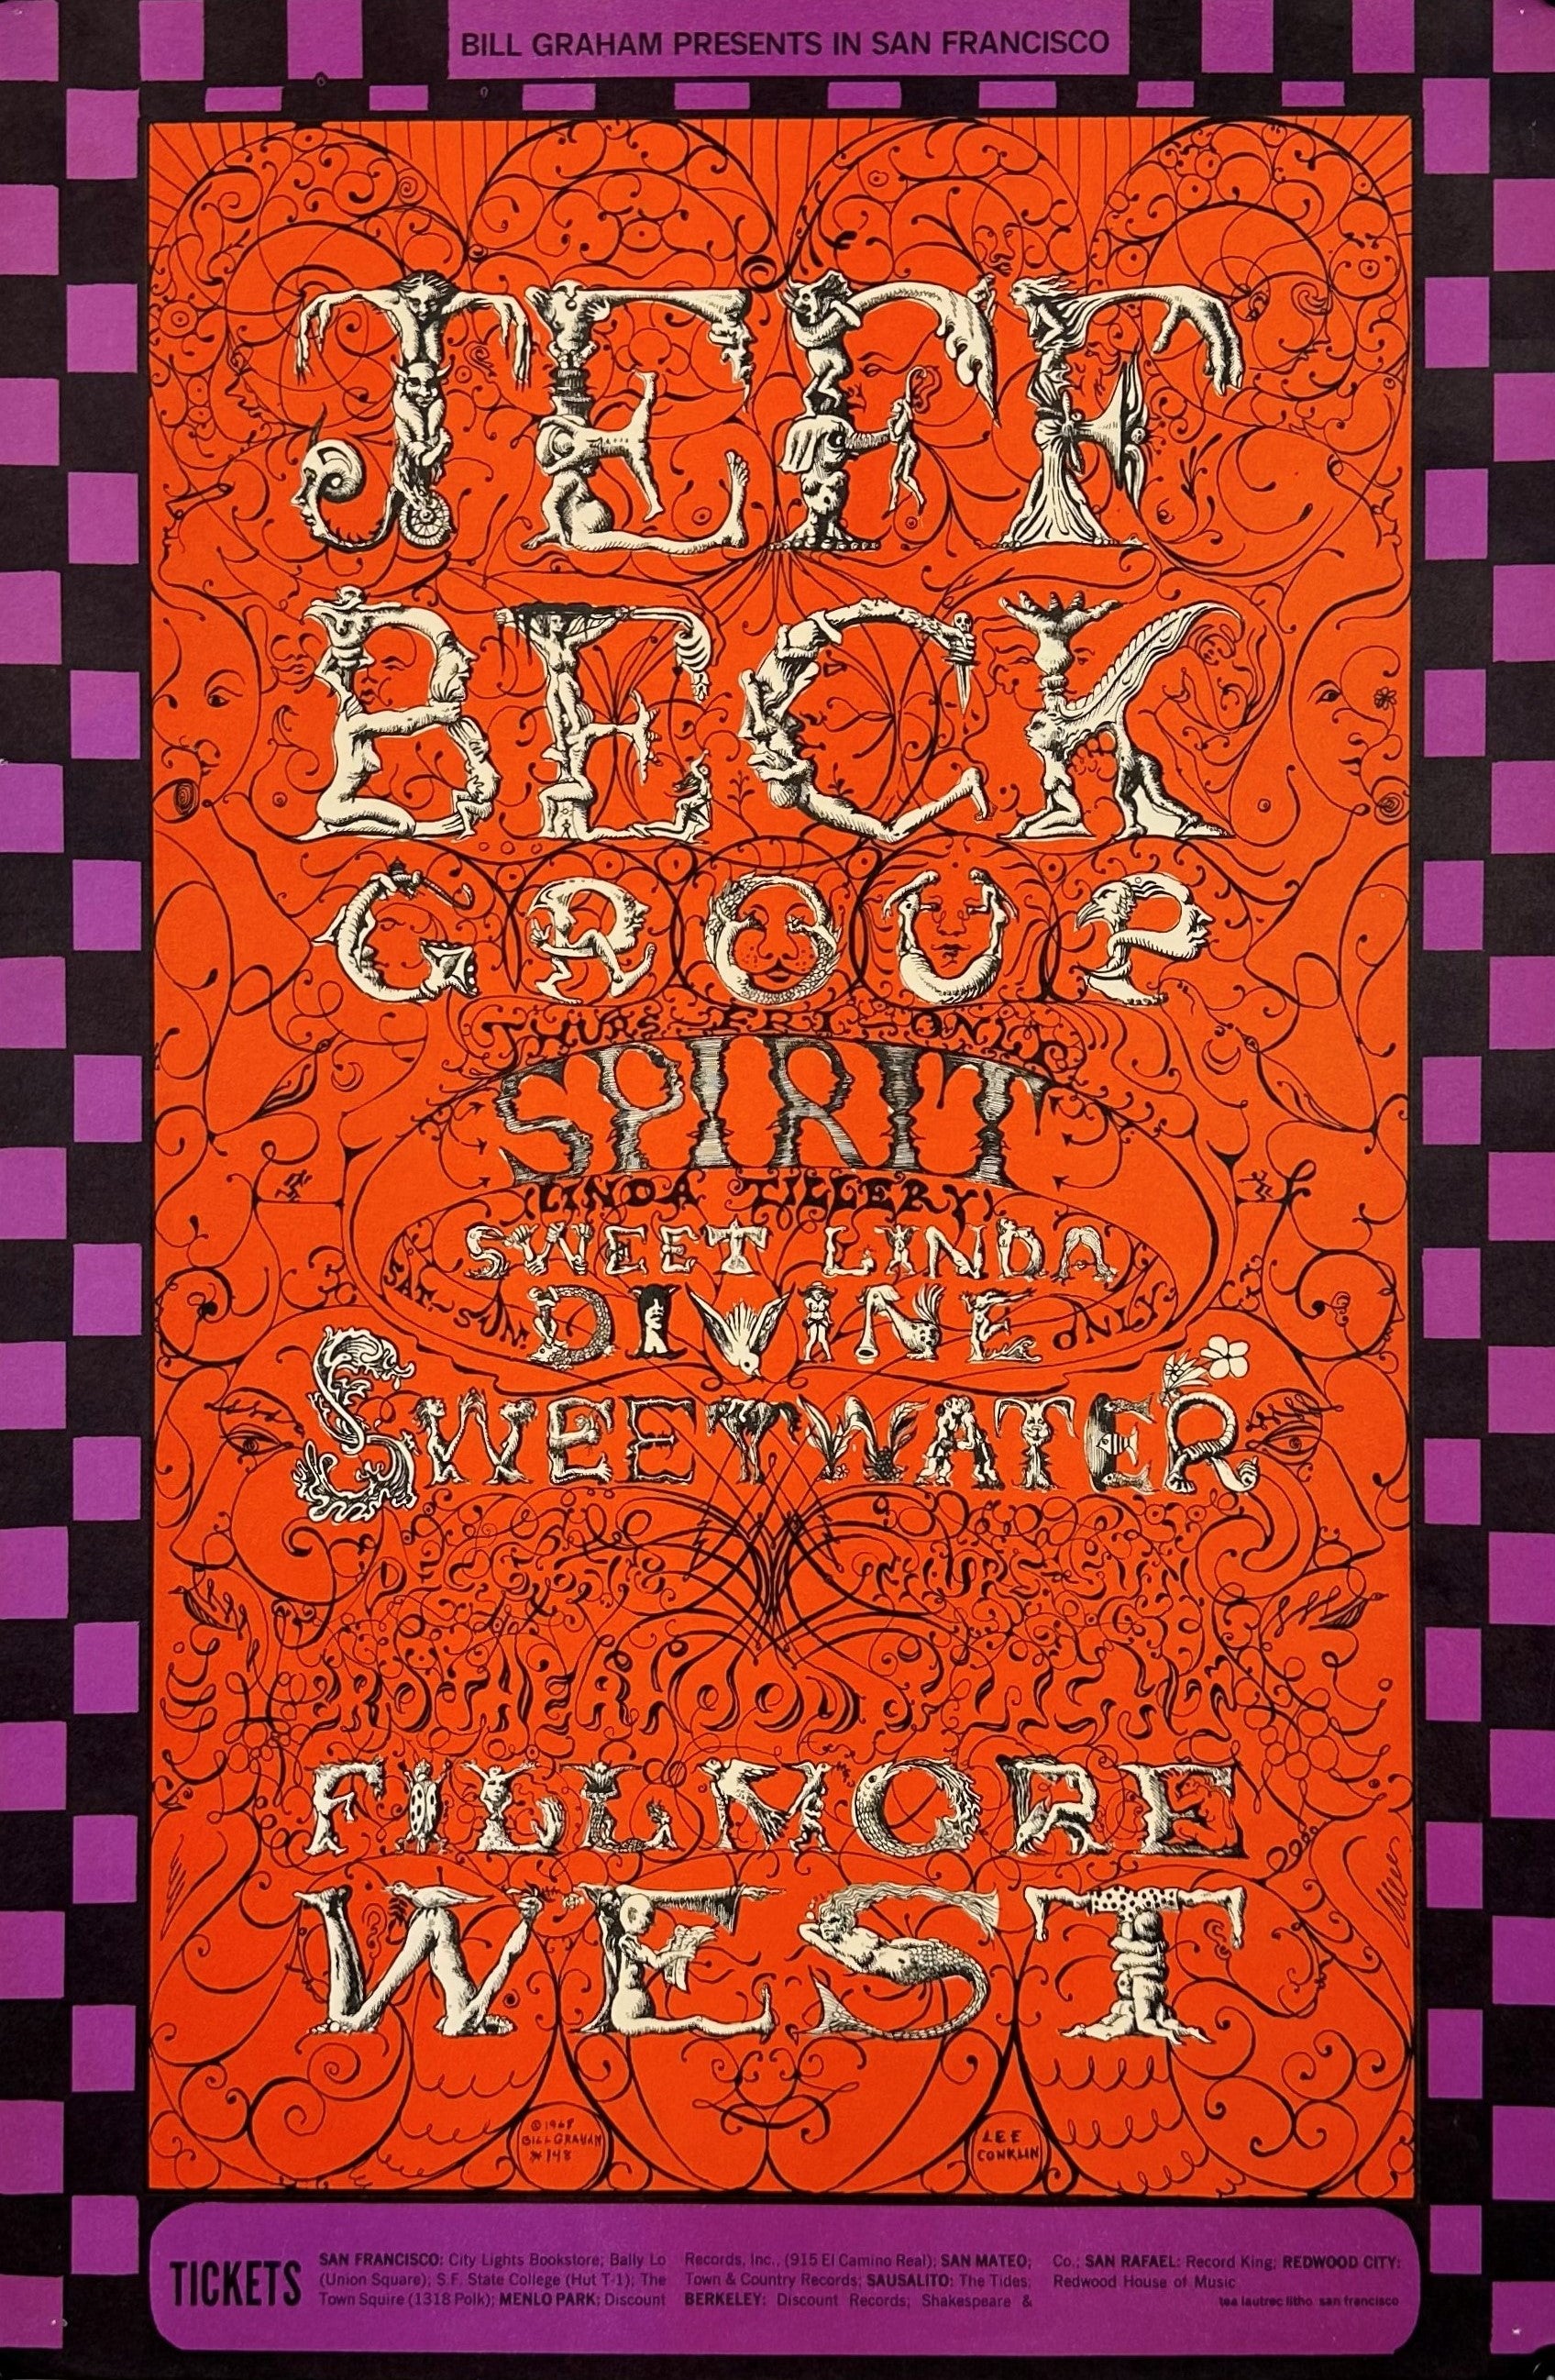 BILL GRAHAM PRESENTS IN SAN FRANCISCO
JEFF
BECK
GROUP
THURS-FRI-ONLY
SPIRIT
(LINDA TILLERY)
SWEET LINDA
DIVINE
SAT-SUN. ONLY.
SWEETWATER
DEC 5 6 7 8 THURS-SUN
BROTHERHOOD OF LIGHT
FILLMORE
WEST
©1968
BILL GRAHAM
#148
LEE
CONKLIN
TICKETS
SAN FRANCISCO: City Lights Bookstore; Bally Lo
(Union Square); S.F. State College (Hut T-1); The
Town Squire (1318 Polk); MENLO PARK; Discount
Records, Inc., (915 El Camino Real); SAN MATEO;
Town & Country Records; SAUSALITO: The Tides;
BERKELEY: Discount Records; Shakespeare &
Co.; SAN RAFAEL: Record King; REDWOOD CITY:
Redwood House of Music
tea lautrec litho san francisco